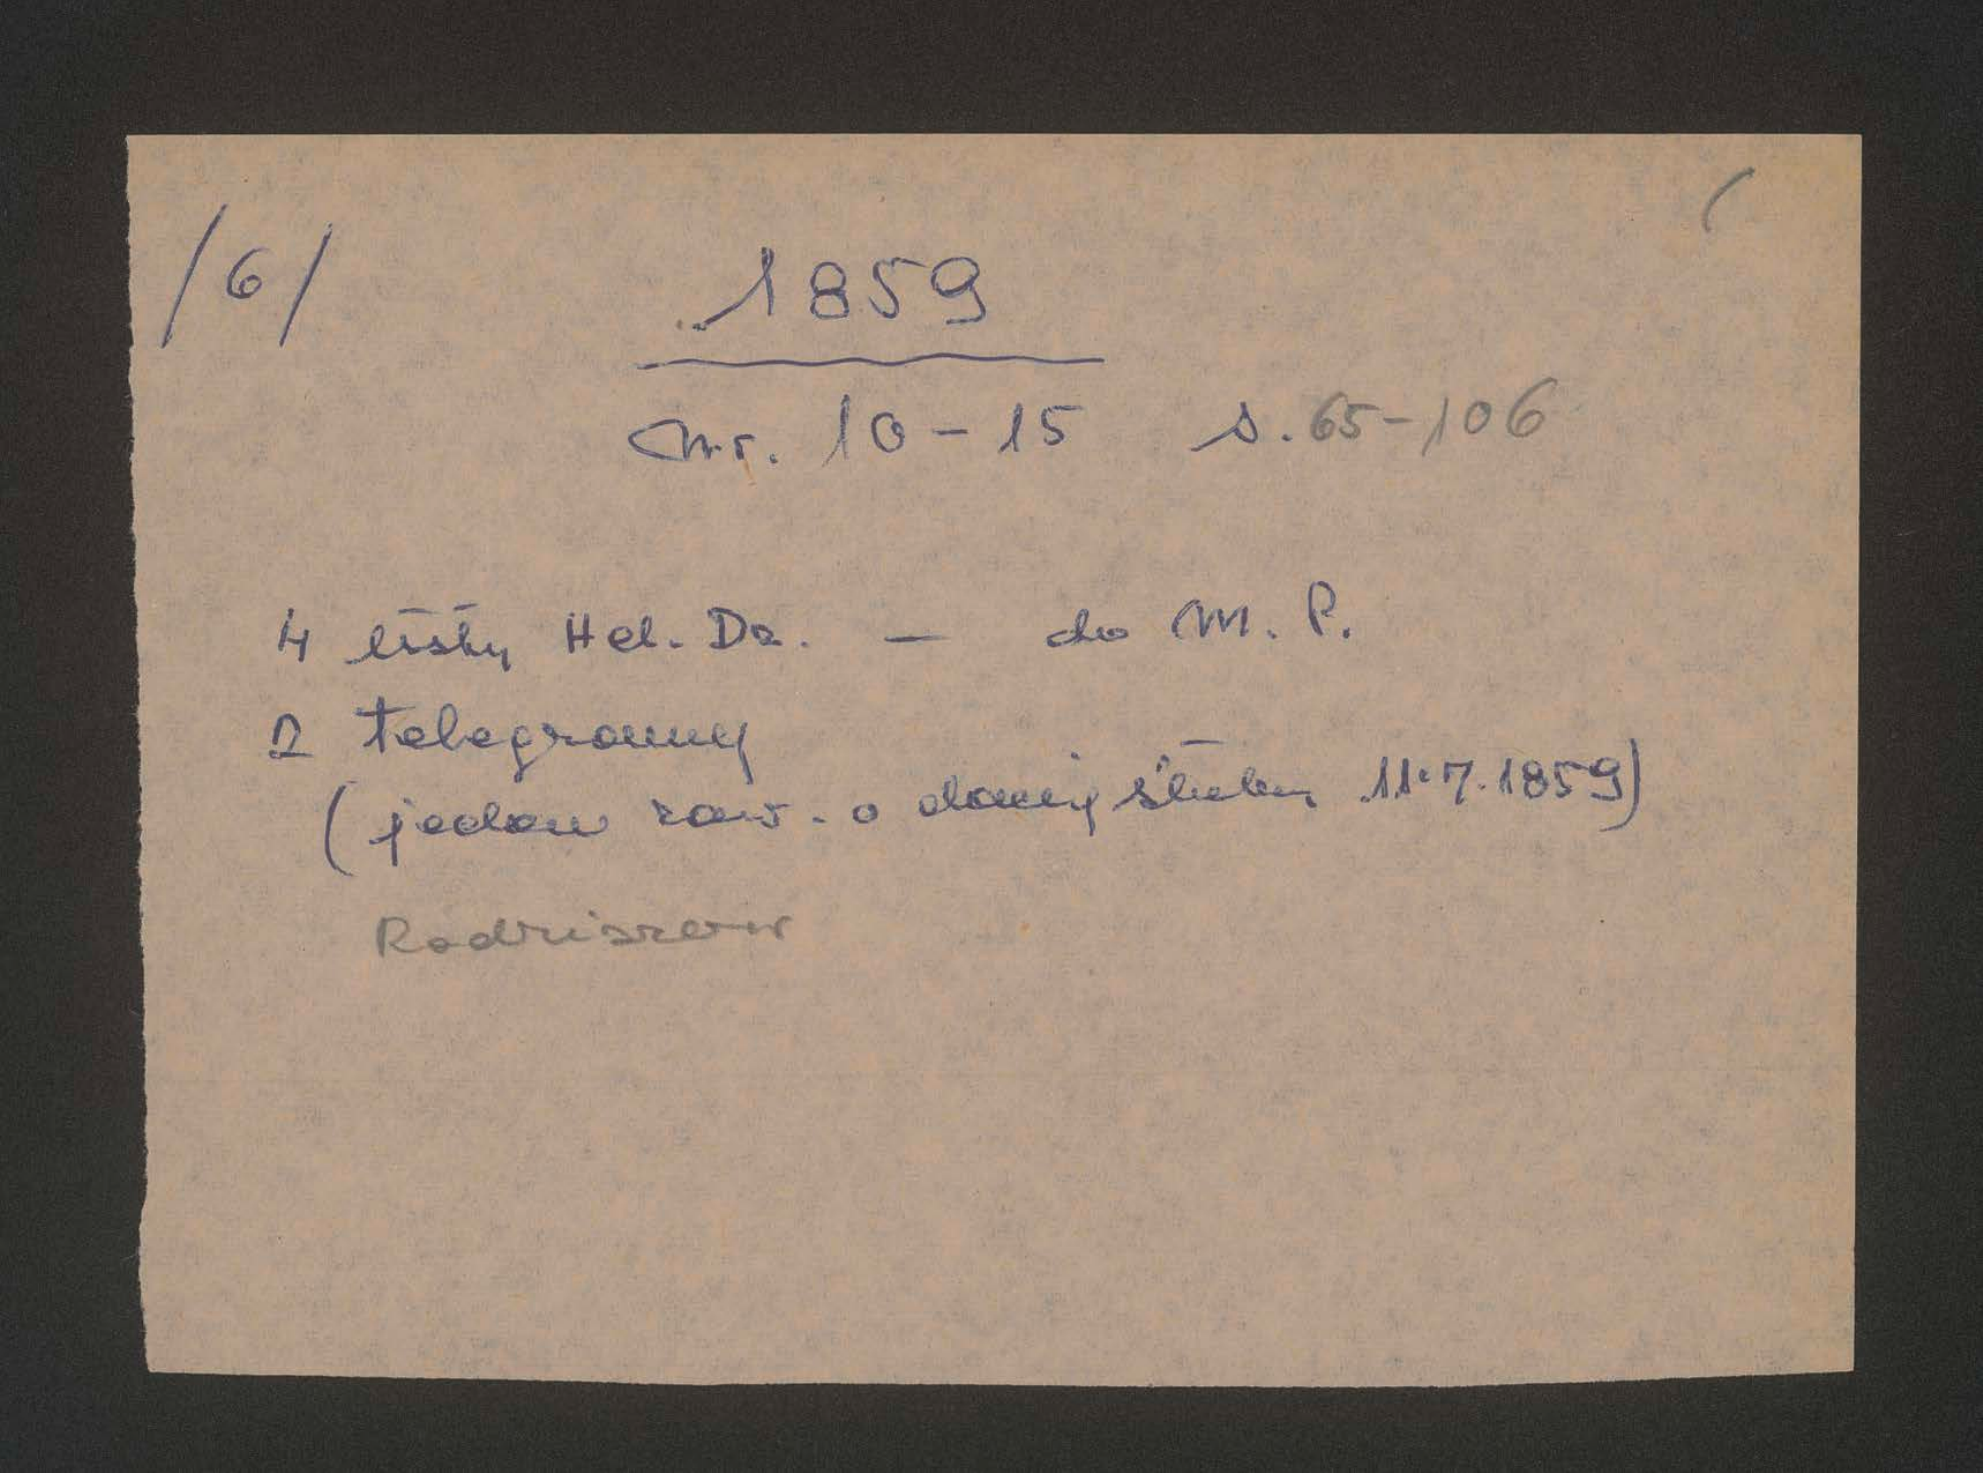 /6/
1859
Nr. 10-15 s. 65-106
4 listy Hel. Dz. — do M. P.
2 telegramy
(jeden zaw. o dacie ślubu 11.7.1859)
Radziszów